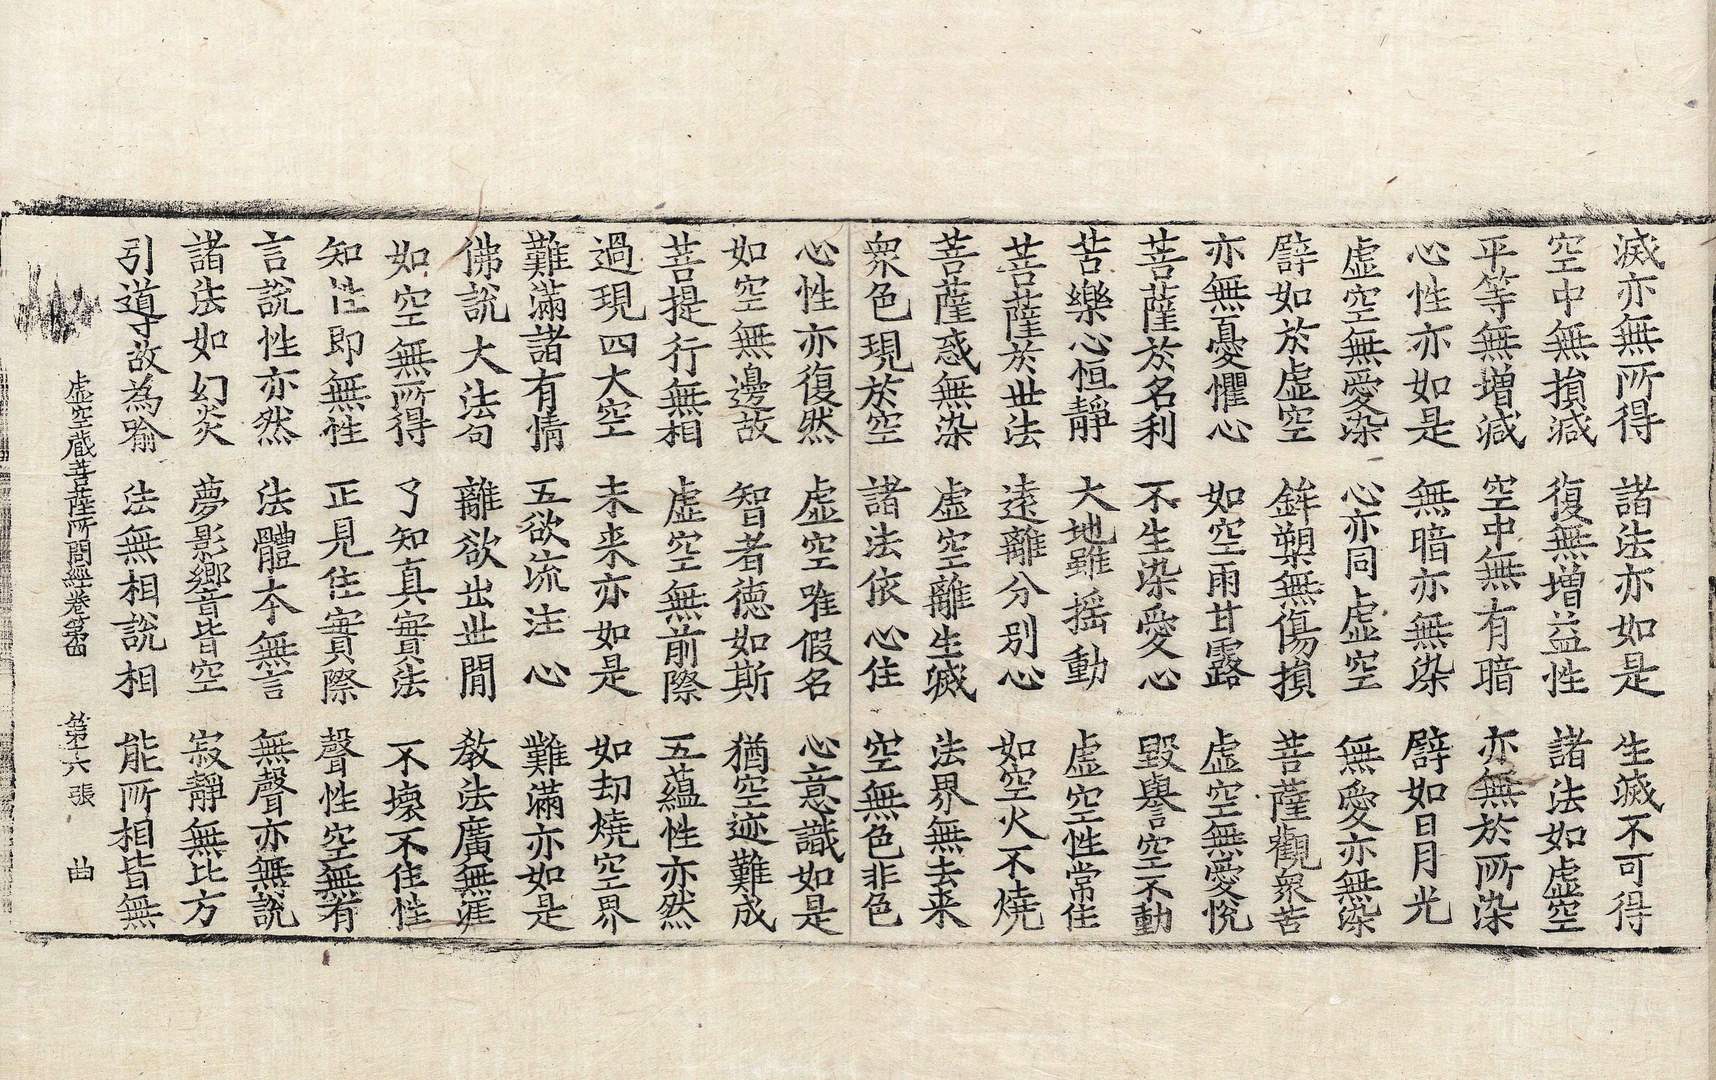 滅亦無所得　諸法亦如是　生滅不可得
空中無損減　復無增益性　諸法如虛空
平等無增減　空中無有暗　亦無於所染
心性亦如是　無暗亦無染　譬如日月光
虛空無愛染　心亦同虛空　無愛亦無染
譬如於虛空　鉾槊無傷損　菩薩觀衆苦
亦無憂懼心　如空雨甘露　虛空無愛悅
菩薩於名利　不生染愛心　毀譽空不動
苦樂心恒靜　大地雖搖動　虛空性常住
菩薩於世法　遠離分別心　如空火不燒
菩薩惑無染　虛空離生滅　法界無去来
衆色現於空　諸法依心住　空無色非色
心性亦復然　虛空唯假名　心意識如是
如空無邊故　智者德如斯　猶空迹難成
菩提行無相　虛空無前際　五蘊性亦然
過現四大空　未来亦如是　如劫燒空界
難滿諸有情　五欲流注心　難滿亦如是
佛說大法句　離欲出世間　教法廣無涯
如空無所得　了知真實法　不壞不住性
知性即無性　正見住實際　聲性空無有
言說性亦然　法體本無言　無聲亦無說
諸法如幻炎　夢影響皆空　寂靜無比方
引導故為喻　法無相說相　能所相皆無
虛空藏菩薩所問經卷第四　第十六張　曲